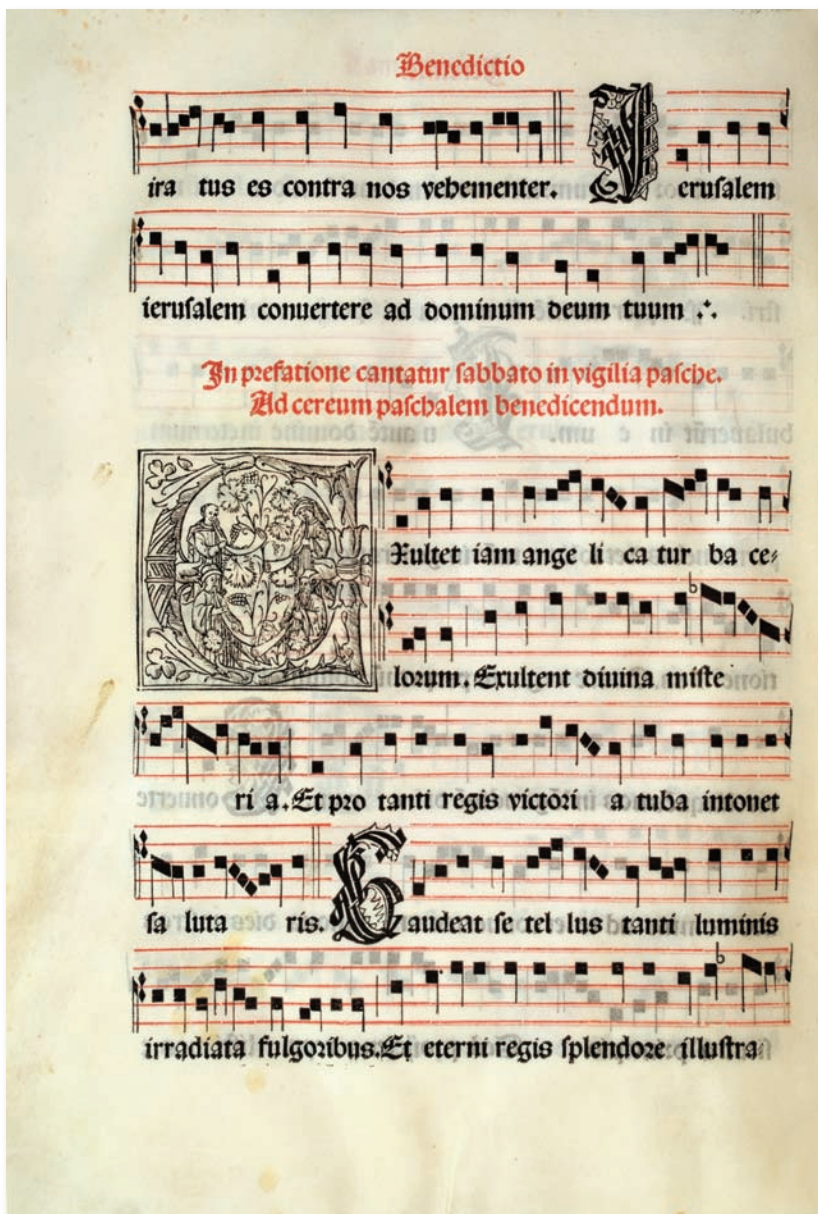 Benedictio
ira tus es contra nos vehementer. Ierusalem
ierusalem conuertere ad dominum deum tuum
In prefatione cantatur sabbato in vigilia pasche.
Ad cereum paschalem benedicendum.
EXultet iam ange li ca tur ba ce-
lorum. Exultent diuina miste
ri a. Et pro tanti regis victori a tuba intonet
sa luta ris. Gaudeat se tel lus tanti luminis
irradiata fulgoribus. Et eterni regis splendore illustra-